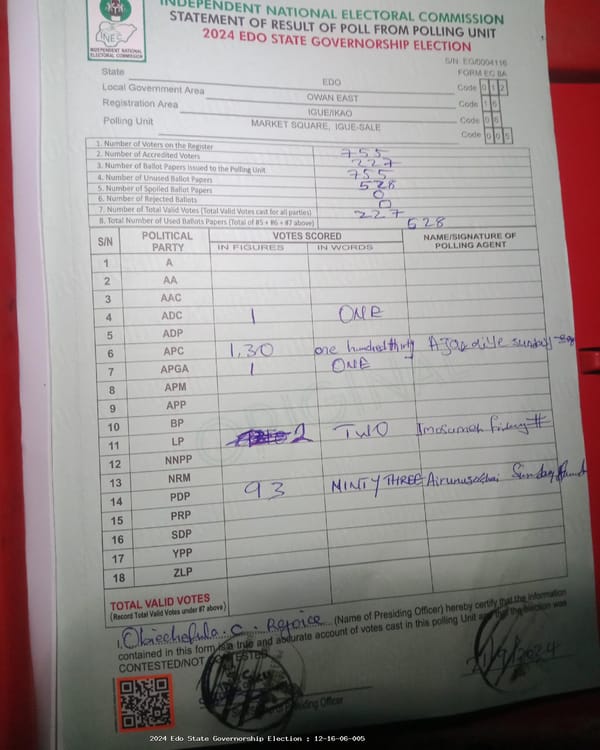 INDEPENDENT NATIONAL ELECTORAL COMMISSION
STATEMENT OF RESULT OF POLL FROM POLLING UNIT
2024 EDO STATE GOVERNORSHIP ELECTION
INEC
INDEPENDENT NATIONAL ELECTORAL COMMISSION
S/N: EG/0004116
FORM EC 8A
State EDO Code 0 1 2
Local Government Area OWAN EAST Code 1 6
Registration Area IGUE/IKAO Code 0 6
Polling Unit MARKET SQUARE, IGUE-SALE Code 0 0 5
1. Number of Voters on the Register 755
2. Number of Accredited Voters 227
3. Number of Ballot Papers Issued to the Polling Unit 755
4. Number of Unused Ballot Papers 528
5. Number of Spoiled Ballot Papers 0
6. Number of Rejected Ballots 0
7. Number of Total Valid Votes (Total Valid Votes cast for all parties) 227
8. Total Number of Used Ballots Papers (Total of #5 + #6 + #7 above) 528
S/N POLITICAL PARTY VOTES SCORED NAME/SIGNATURE OF POLLING AGENT
IN FIGURES IN WORDS
1 A
2 AA
3 AAC
4 ADC 1 ONE
5 ADP
6 APC 1,30 one hundred thirty sunday
7 APGA 1 ONE
8 APM
9 APP
10 BP
11 LP 2 TWO
12 NNPP
13 NRM
14 PDP 93 NINTY THREE Sunday
15 PRP
16 SDP
17 YPP
18 ZLP
TOTAL VALID VOTES
(Record Total Valid Votes under #7 above)
I, C. Rejoice (Name of Presiding Officer) hereby certify that the information
contained in this form is a true and accurate account of votes cast in this polling Unit and that the election was
CONTESTED/NOT CONTESTED
21/9/2024
Presiding Officer
2024 Edo State Governorship Election : 12-16-06-005